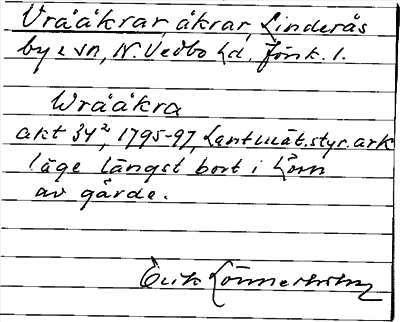 Vrååkrar, åkrar, Linderås
by o sn, N. Vedbo hd, Jönk. l.
Wrååkra
akt 34², 1795-97, Lantmät.styr. ark
läge längst bort i hörn
av gärde.
Erik Lönnerholm